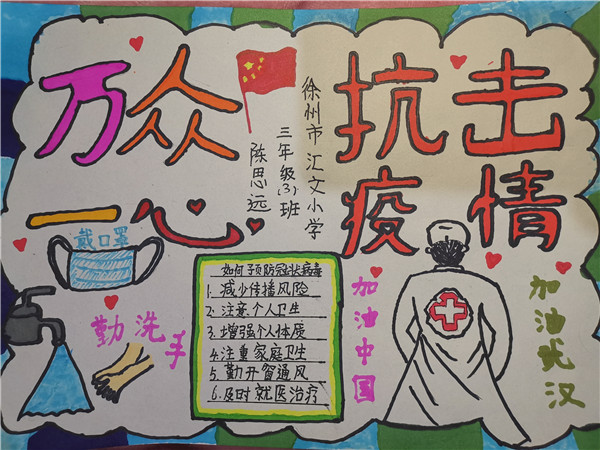 万众
一心
徐州市汇文小学
三年级(3)班
陈思远
抗击
疫情
戴口罩
勤洗手
如何预防冠状病毒
1. 减少传播风险
2. 注意个人卫生
3. 增强个人体质
4. 注重家庭卫生
5. 勤开窗通风
6. 及时就医治疗
加油中国
加油武汉